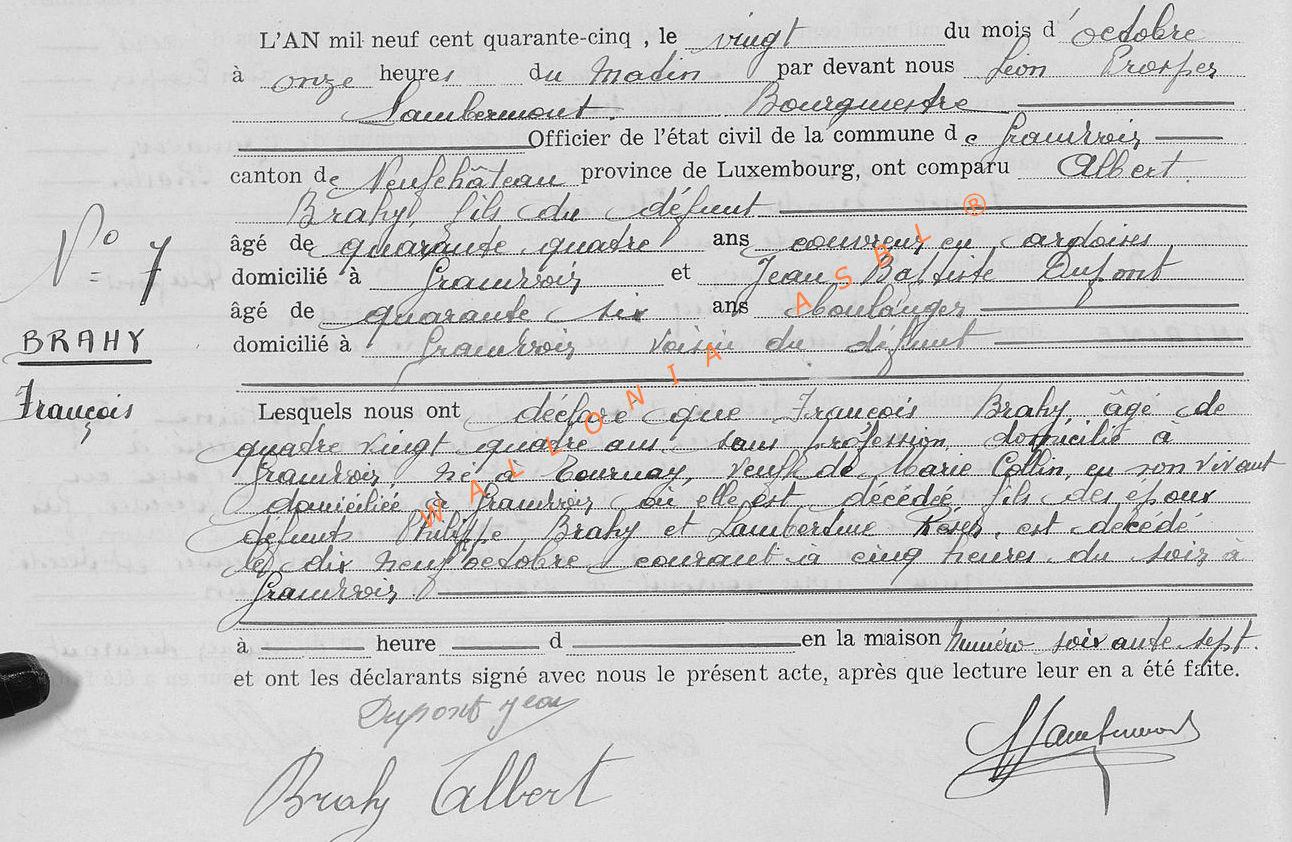 L'AN mil neuf cent quarante-cinq, le vingt du mois d'octobre
à onze heures du Matin par devant nous Léon Prosper
Lambermont. Bourgmestre
Officier de l'état civil de la commune de Grandvoir
canton de Neufchâteau province de Luxembourg, ont comparu Albert
Brahy, fils du défunt
âgé de quarante quatre ans couvreur en ardoises
N° 7
domicilié à Grandvoir et Jean Baptiste Dupont
âgé de quarante six ans boulanger
BRAHY
domicilié à Grandvoir voisin du défunt
François
Lesquels nous ont déclaré que François Brahy âgé de
quatre vingt quatre ans sans profession domicilié à
Grandvoir, né à Tournay, veuf de Marie Collin, en son vivant
domiciliée à Grandvoir où elle est décédée fils des époux
défunts Philippe Brahy et Lambertine est décédé
le dix neuf octobre courant à cinq heures du soir à
Grandvoir
à heure d en la maison Numéro soixante sept.
et ont les déclarants signé avec nous le présent acte, après que lecture leur en a été faite.
Dupont Jean
Lambermont
Brahy Albert
WALLONIA ASBL ®